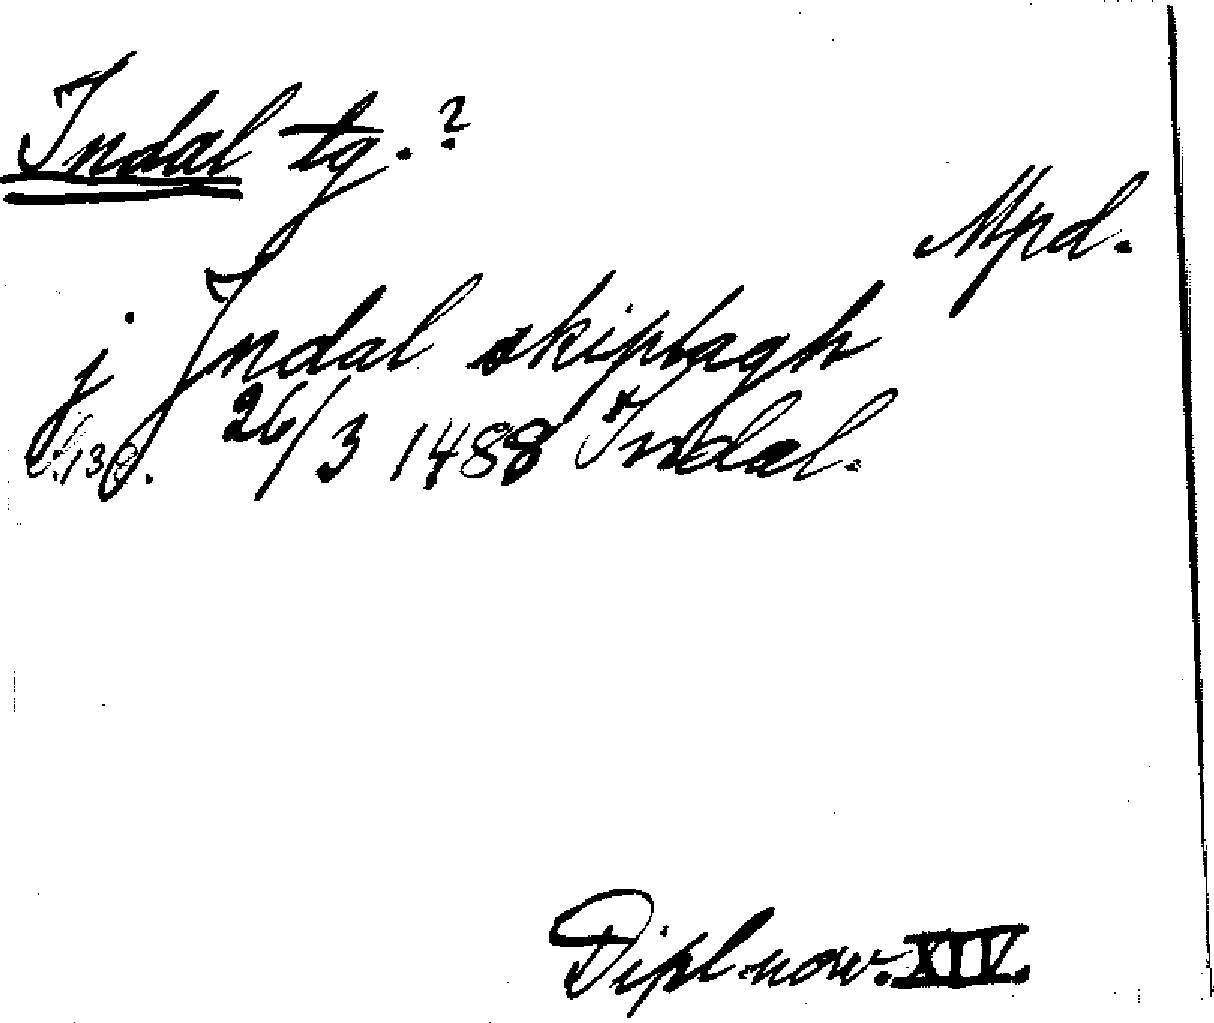 Indal tg.?
Mpd.
j Indal skiplagh
S. 130. 26/3 1488 Indal.
Dipl. norv. XIV.